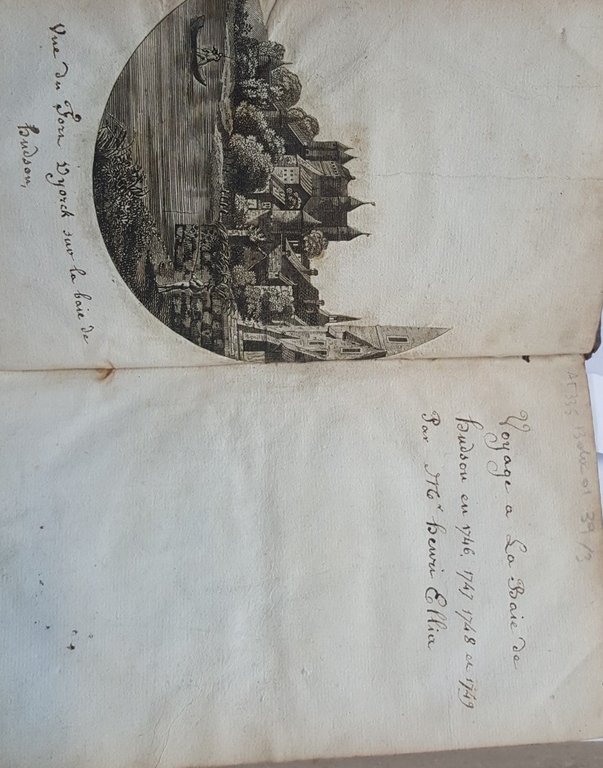 Vue du Forn D'yorck sur la baie de
hudson,
Voyage a La Baie de
hudson en 1746, 1747 1748 et 1749
Par Mr henri Ellia